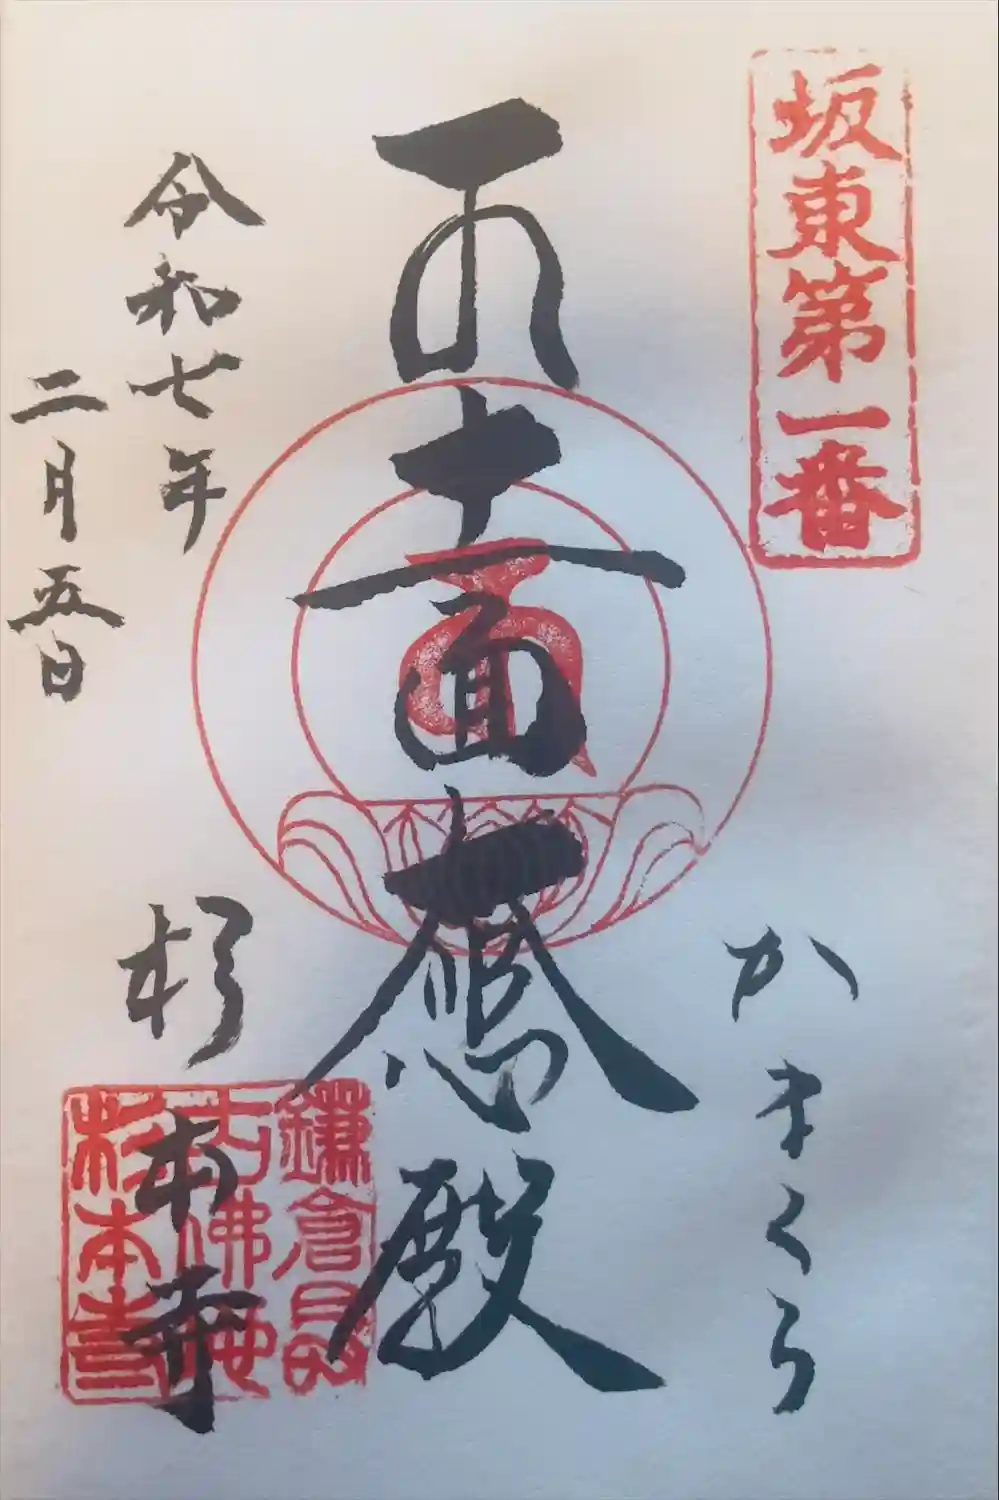 坂東第一番
かまくら
十一面大悲殿
令和七年
二月五日
杉本寺
鎌倉
杉本寺